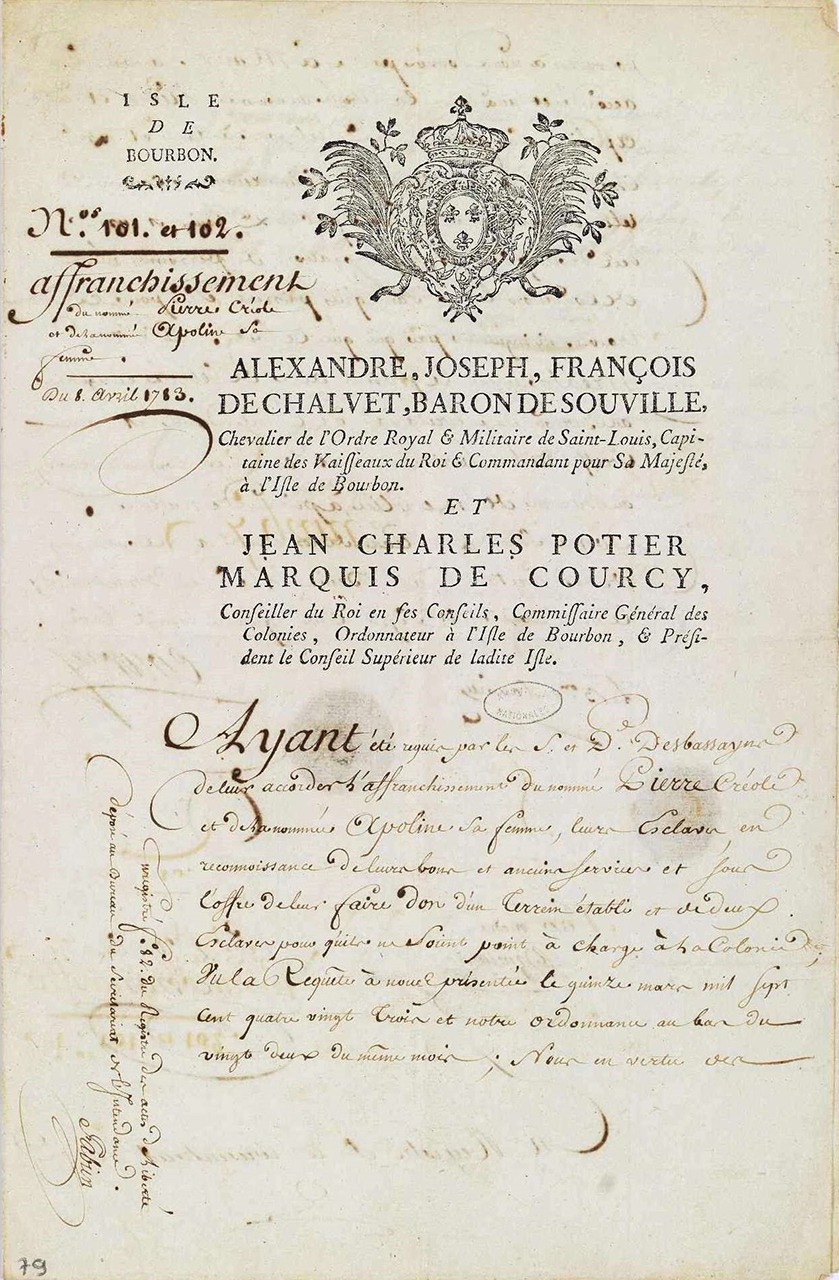 ISLE
DE
BOURBON.
N.os 101. et 102.
affranchissement
du nommé Pierre Créole
et de la nommée Apoline sa
femme.
Du 8. Avril 1783.
ALEXANDRE, JOSEPH, FRANÇOIS
DE CHALVET, BARON DE SOUVILLE,
Chevalier de l'Ordre Royal & Militaire de Saint-Louis, Capi-
taine des Vaiſſeaux du Roi & Commandant pour Sa Majeſté,
à l'Iſle de Bourbon.
ET
JEAN CHARLES POTIER
MARQUIS DE COURCY,
Conſeiller du Roi en ſes Conſeils, Commiſſaire Général des
Colonies, Ordonnateur à l'Iſle de Bourbon, & Préſi-
dent le Conſeil Supérieur de ladite Iſle.
NATIONALES
Ayant été requis par les S. et D.e Desbassayns
de leur accorder l'affranchissement du nommé Pierre Créole
et de la nommée Apoline sa femme, leurs Esclaves, en
reconnoissance de leurs bons et anciens services et sous
l'offre de leur faire don d'un Terrein établi et de deux
Esclaves pour qu'ils ne soient point à charge à la Colonie
Vu la Requête à nous présentée le quinze mars mil sept
cent quatre vingt Trois et notre ordonnance au bas du
vingt deux du même mois ; Nous en vertu des
Enregistré f.o 82. du Registre des actes de liberté
déposé au Bureau du Secrétariat de l'Intendance.
79